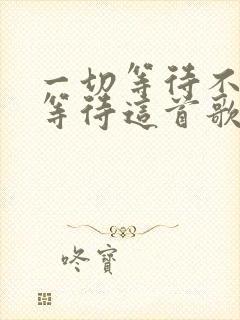 一切等待不
等待這首歌
咚寶